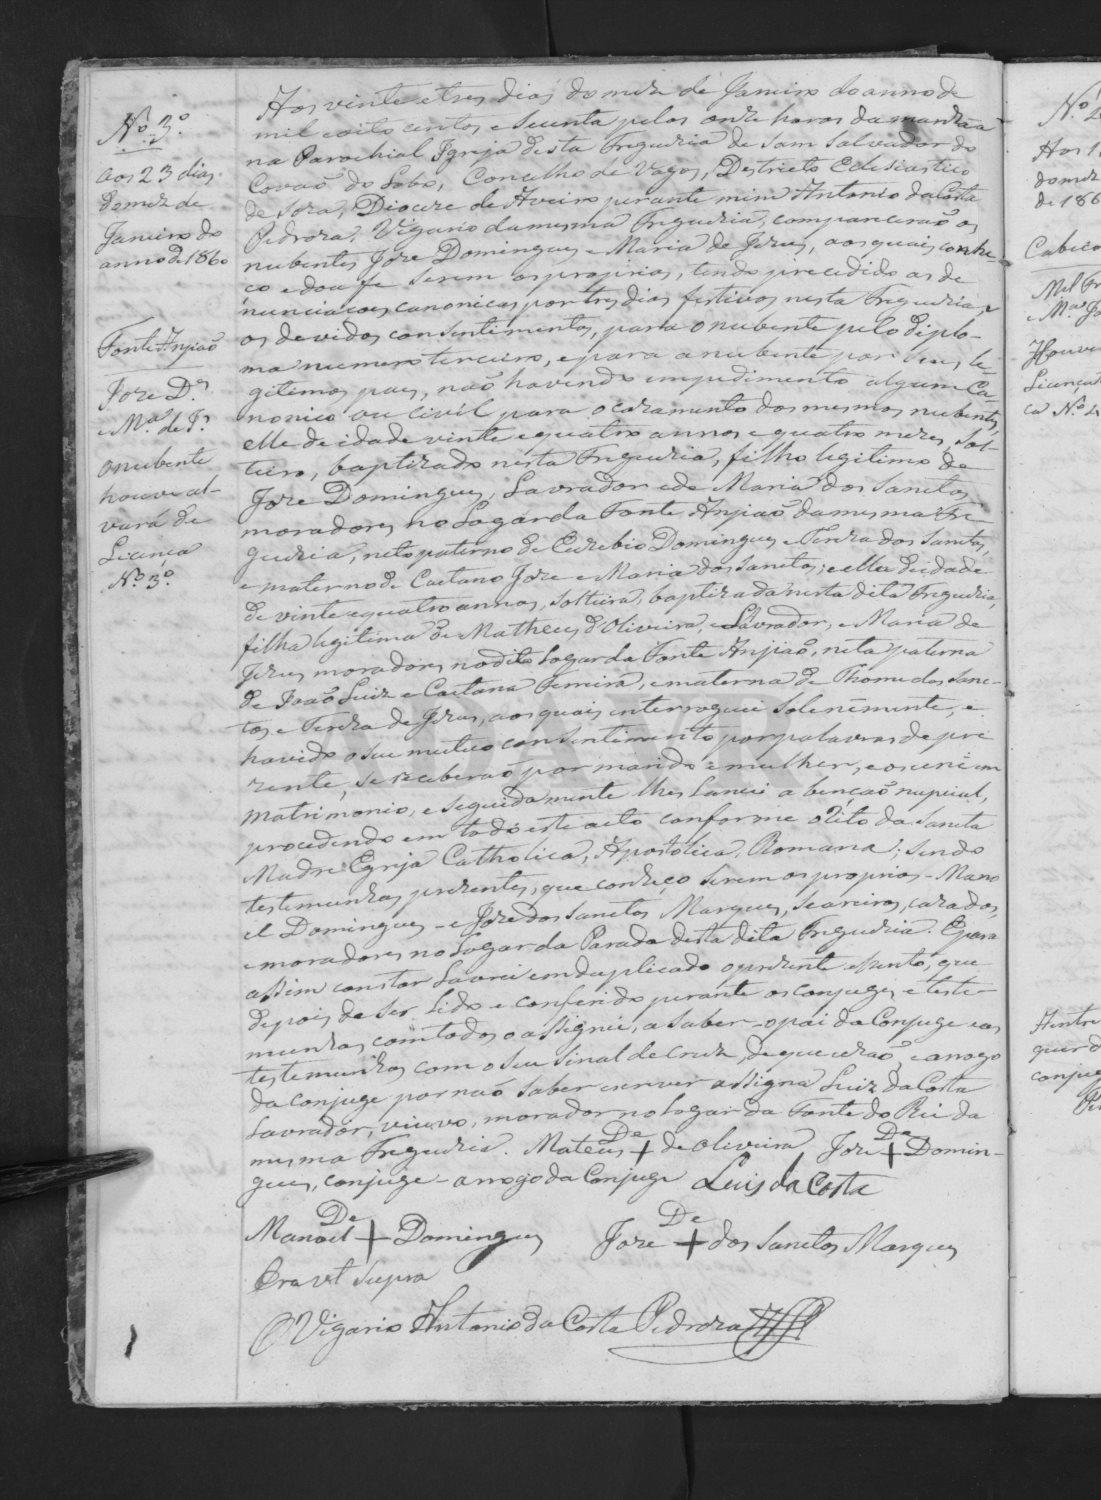 Nº 3º
aos 23 dias
do mez de
Janeiro do
anno de 1860
Fonte Anjiaõ
Joze D.es
e M.ª de J.
o nubente
houve al-
vará de
Licença
Nº 3º
Aos vinte e tres dias do mez de Janeiro do anno de
mil e oito centos e secenta pelas onze horas da manhãa
na Parochial Igreja desta Freguezia de Sam Salvador do
Covaõ do Lobo, Concelho de Vagos, Destricto Eclesiastico
de Soza, Dioceze de Aveiro perante mim Antonio da Costa
Pedroza, Vigario da mesma Freguezia, comparceraõ os
nubentes Joze Domingues e Maria de Jezus, aos quais conhe-
ço e dou fe serem os proprios, tendo precedido as de
nunciacoes canonicas por tres dias festivos nesta Freguezia, e
os devidos consentimentos, para o nubente pelo diplo-
ma numero terceiro, e para a nubente por seus le-
gitimos pais, naõ havendo impedimento algum Ca-
nonico ou civil para o cazamento dos mesmos nubentes,
elle de idade vinte e quatro annos e quatro mezes, sol-
teiro, baptizado nesta Freguezia, filho legitimo de
Joze Domingues, Lavrador e de Maria dos Sanctos,
moradores no Logar da Fonte Anjiaõ da mesma Fre
guezia, neto paterno de Euzebio Domingues e Tereza dos Santos,
e materno de Caetano Joze e Maria dos Sanctos; e ella de idade
de vinte e quatro annos, solteira, baptizada nesta dita Freguezia,
filha legitima de Matheus d'Oliveira, e Lavrador, e Maria de
Jezus moradores no dito Logar da Fonte Anjiaõ, neta paterna
de Joaõ Luiz e Caetana Ferreira, e materna de Thome dos Sanc-
tos e Tereza de Jezus, aos quais interroguei solenemente, e
havido o seu mutuo consentimento por palavras de pre
zente, se receberaõ por marido e mulher, e os uni em
matrimonio, e seguidamente lhes lancei a bençaõ nupcial,
procedendo em todo este acto conforme o rito da Sancta
Madre Egreja Catholica, Apostolica, Romana; sendo
testemunhas prezentes, que conheço serem os proprios - Mano
el Domingues - e Joze dos Sanctos Marques, Seareiros, cazados,
e moradores no Logar da Parada desta dita Freguezia. E para
assim constar lavrei em duplicado o prezente assento, que
depois de ser lido e conferido perante os conjuges, e teste-
munhas, com todos o assignei, a saber - o pai da Conjuge e as
testemunhas com o seu sinal de Cruz, de que uzaõ, e a rogo
da conjuge por naõ saber escrever assigna Luiz da Costa
Lavrador, viuvo, morador no Logar da Fonte do Rei da
mesma Freguezia. Mateus De + de Oliveira Joze De + Domin-
gues, conjuge - a rogo da Conjuge Luis da Costa
Manoel De + Domingues Joze De + dos Sanctos Marques
Era vt supra
O Vigario Antonio da Costa Pedroza